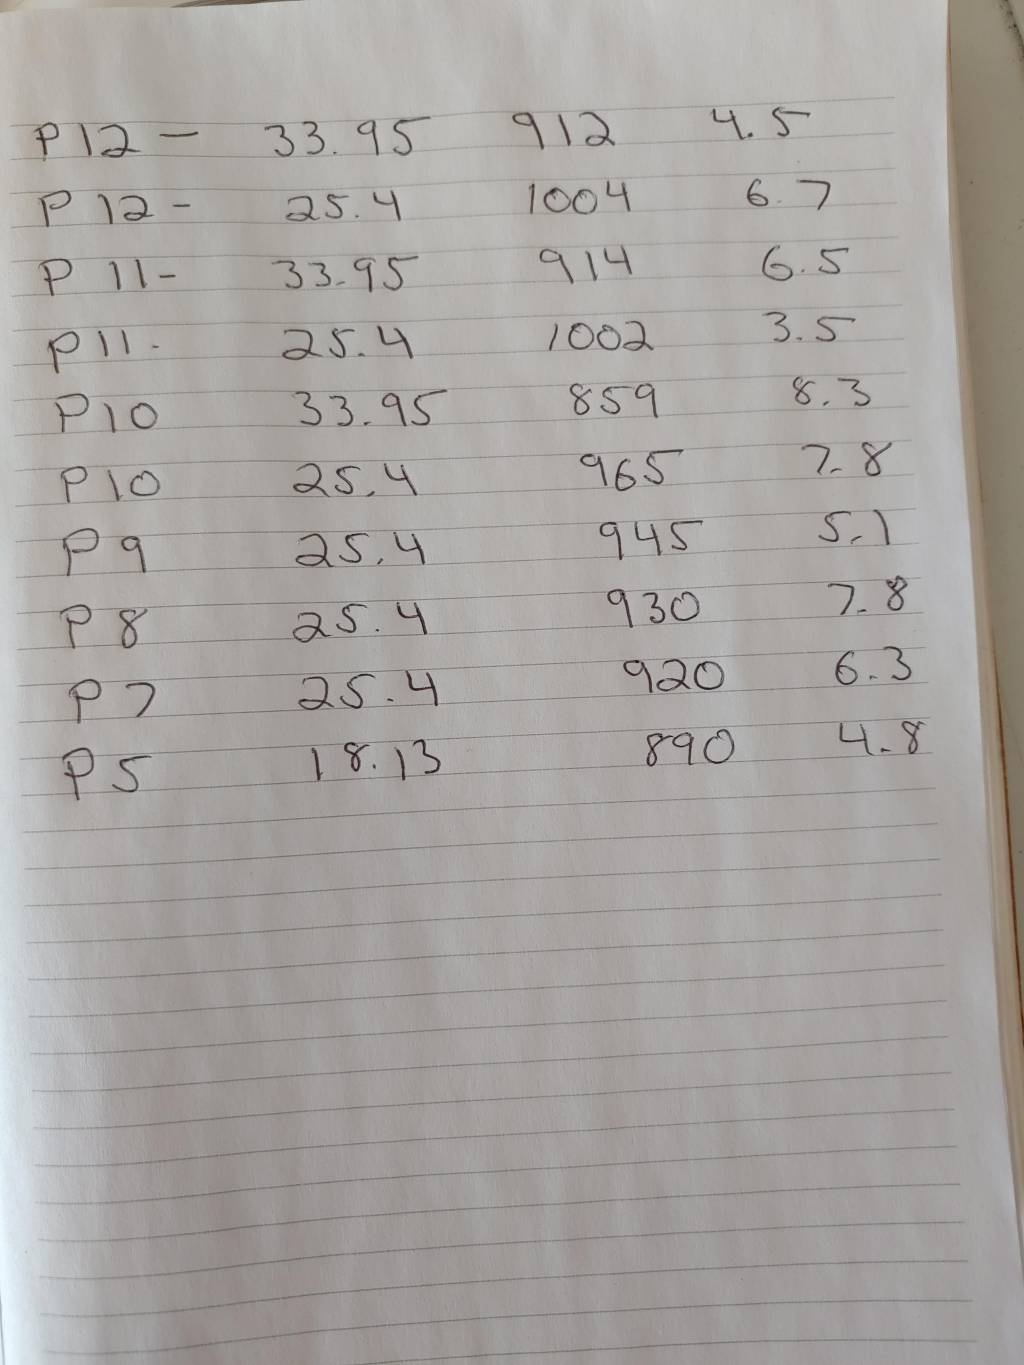 P12 - 33.95 912 4.5
P 12 - 25.4 1004 6.7
P 11 - 33.95 914 6.5
P11. 25.4 1002 3.5
P10 33.95 859 8.3
P10 25.4 965 7.8
P9 25.4 945 5.1
P8 25.4 930 7.8
P7 25.4 920 6.3
P5 18.13 890 4.8